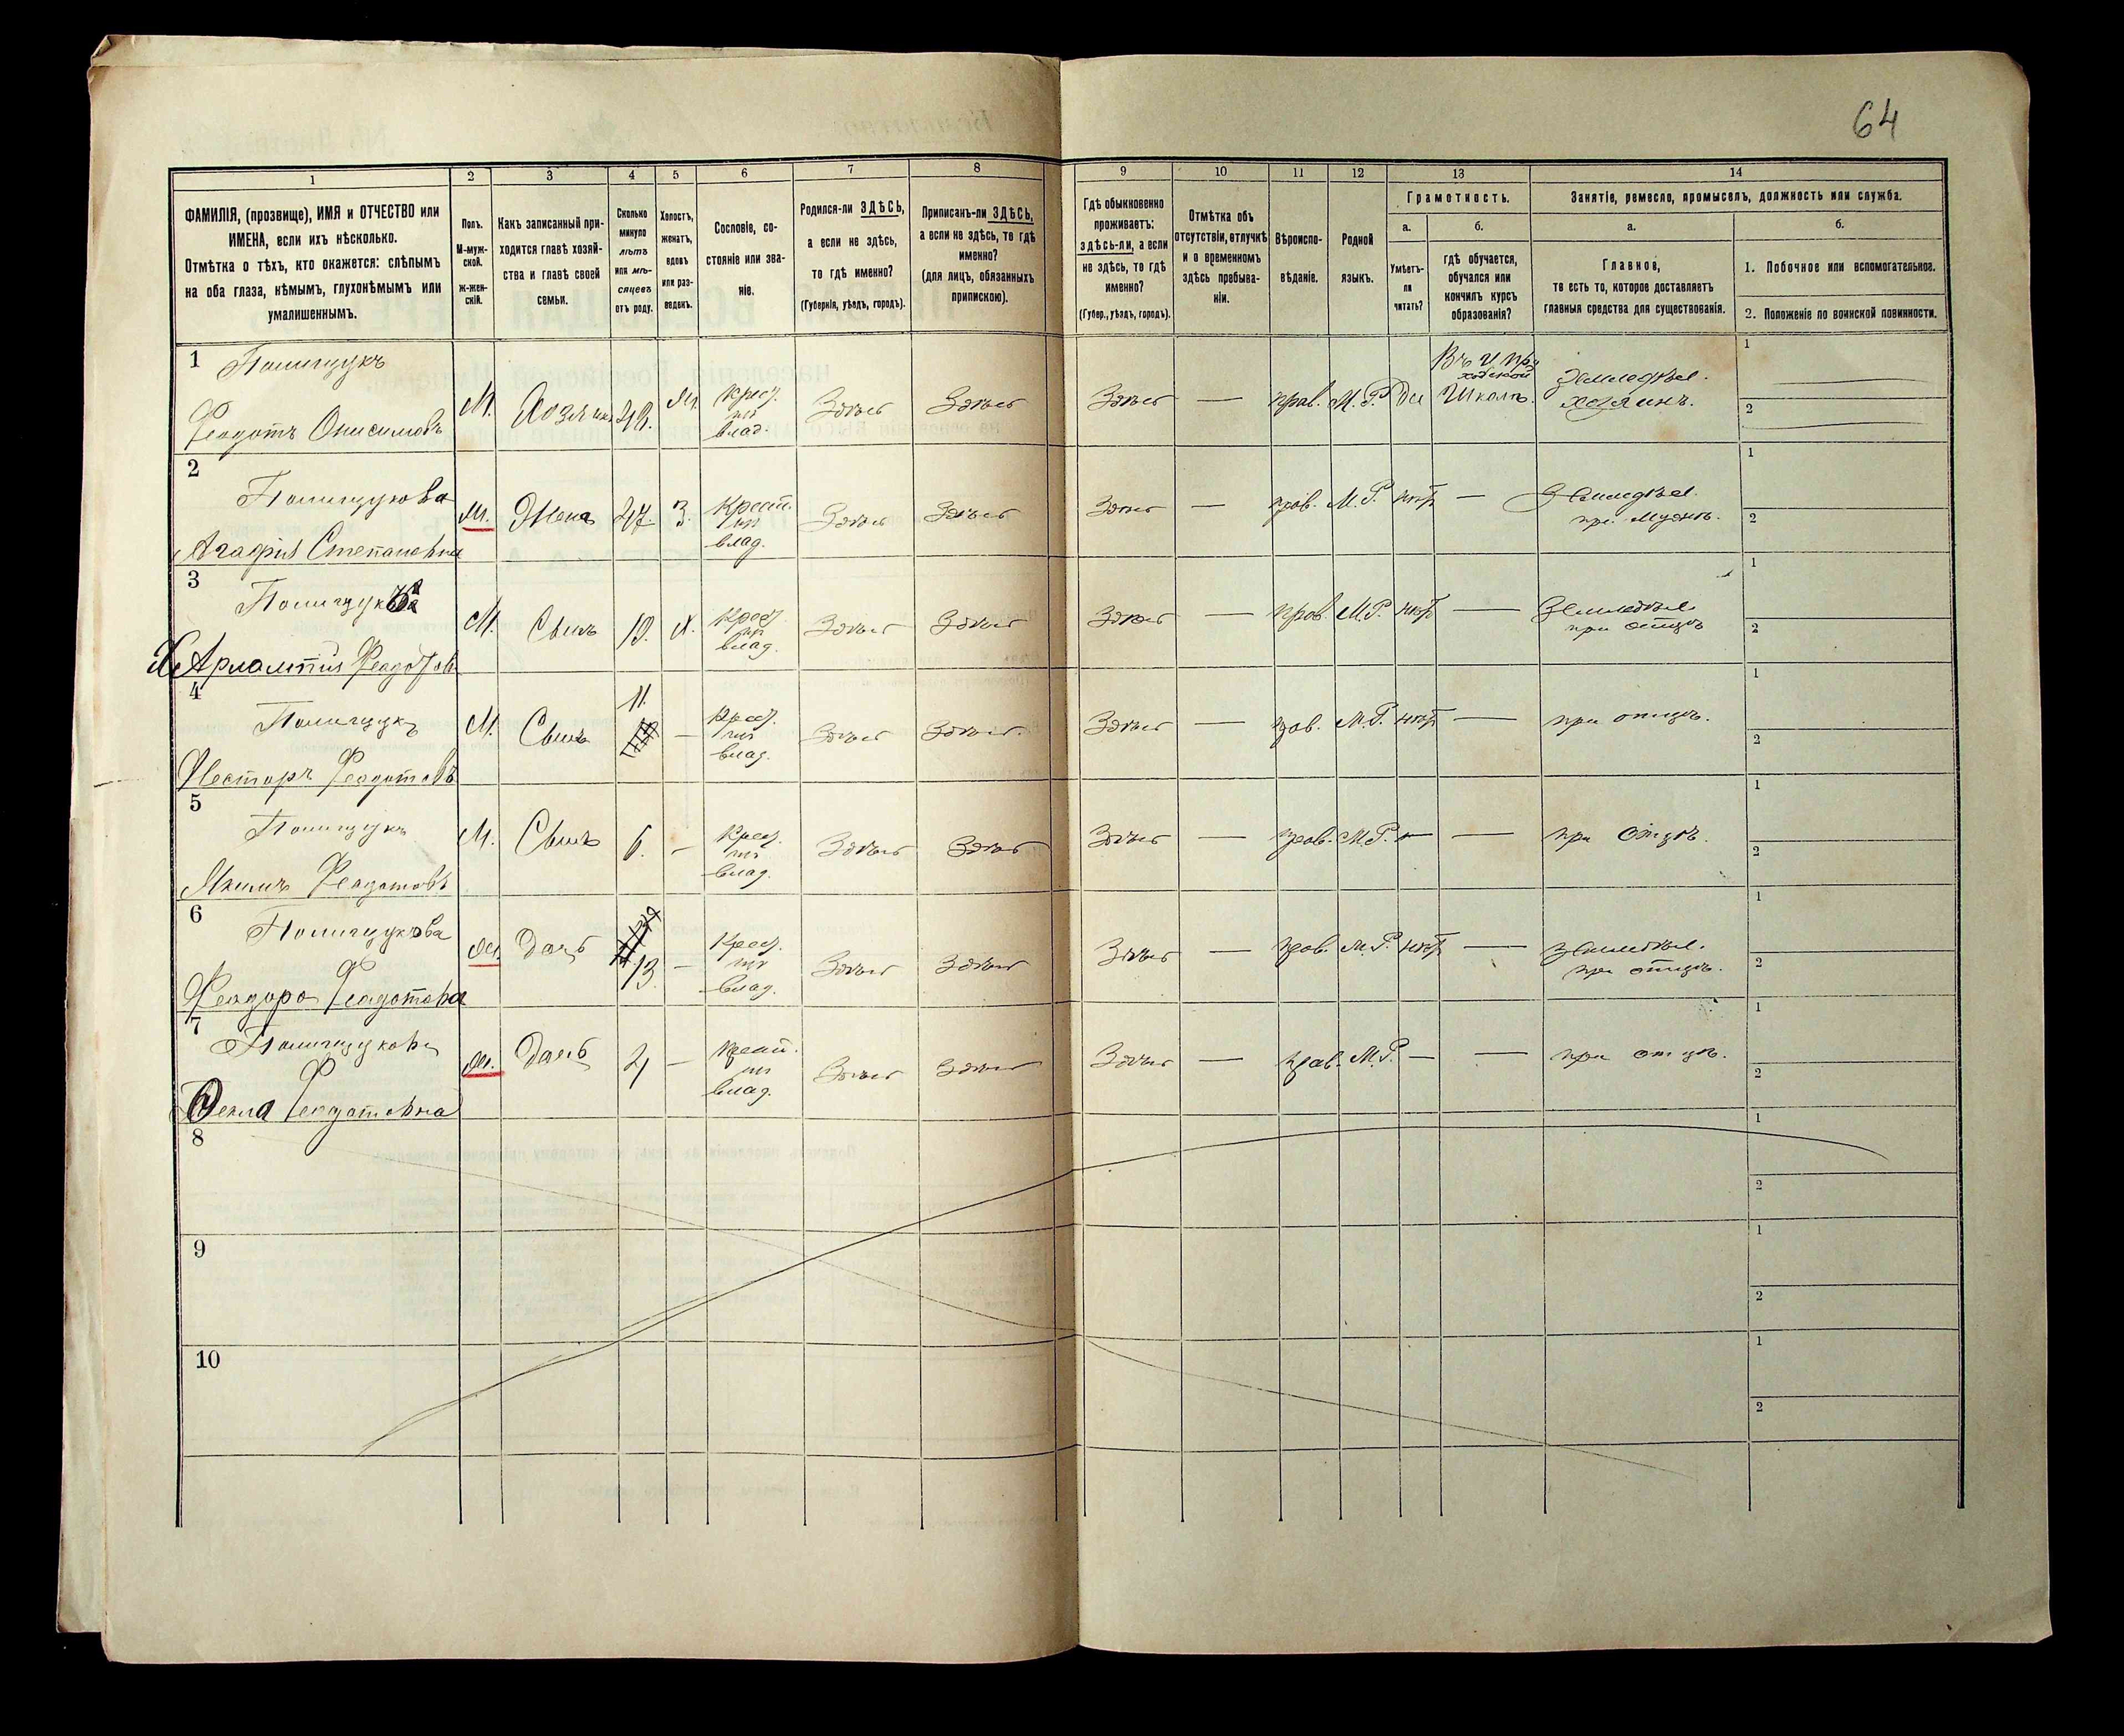 64
1 2 3 4 5 6 7 8 9 10 11 12 13 14
ФАМИЛІЯ, (прозвище), ИМЯ и ОТЧЕСТВО или
ИМЕНА, если ихъ нѣсколько.
Отмѣтка о тѣхъ, кто окажется: слѣпымъ
на оба глаза, нѣмымъ, глухонѣмымъ или
умалишеннымъ.
Полъ.
М-муж-
ской.
ж-жен-
скій.
Какъ записанный при-
ходится главѣ хозяй-
ства и главѣ своей
семьи.
Сколько
минуло
лѣтъ
или мѣ-
сяцевъ
отъ роду.
Холостъ,
женатъ,
вдовъ
или раз-
веденъ.
Сословіе, со-
стояніе или зва-
ніе.
Родился-ли ЗДѢСЬ,
а если не здѣсь,
то гдѣ именно?
(Губернія, уѣздъ, городъ).
Приписанъ-ли ЗДѢСЬ,
а если не здѣсь, то гдѣ
именно?
(для лицъ, обязанныхъ
припискою).
Гдѣ обыкновенно
проживаетъ:
здѣсь-ли, а если
не здѣсь, то гдѣ
именно?
(Губер., уѣздъ, городъ).
Отмѣтка объ
отсутствіи, отлучкѣ
и о временномъ
здѣсь пребыва-
ніи.
Вѣроиспо-
вѣданіе.
Родной
языкъ.
Грамотность.
а.
Умѣетъ-
ли
читать?
б.
гдѣ обучается,
обучался или
кончилъ курсъ
образованія?
Занятіе, ремесло, промыселъ, должность или служба.
а.
Главное,
то есть то, которое доставляетъ
главныя средства для существованія.
б.
1. Побочное или вспомогательное.
2. Положеніе по воинской повинности.
1 Полищукъ
Феодотъ Онисимовъ
М. Хозяинъ 48. Ж. Крест. изъ влад. Здѣсь Здѣсь Здѣсь — прав. М.Р. Да Школѣ. Земледѣл. хозяинъ. 1 2
2 Полищукова
Агафія Степановна
Ж. Жена 47. З. Крест. изъ влад. Здѣсь Здѣсь Здѣсь — прав. М.Р. нѣт — Земледѣл. при мужѣ. 1 2
3
Феодотов
М. Сынъ Х. Крест. изъ влад. Здѣсь Здѣсь Здѣсь — прав. М.Р. нѣт — Земледѣл. при отцѣ 1 2
4 Полищукъ
Несторъ Феодотовъ
М. Сынъ 11. — Крест. изъ влад. Здѣсь Здѣсь. Здѣсь — прав. М.Р. нѣт — при отцѣ. 1 2
5 Полищукъ
Якимъ Феодотовъ
М. Сынъ 6. — Крест. изъ влад. Здѣсь Здѣсь Здѣсь — прав. М.Р. — — при отцѣ. 1 2
6 Полищукова
Феодора Феодотовна
Ж. Дочь 13. — Крест. изъ влад. Здѣсь Здѣсь Здѣсь — прав. М.Р. нѣт — Земледѣл. при отцѣ. 1 2
7 Полищукова
Фекла Феодотовна
Ж. Дочь — Крест. изъ влад. Здѣсь Здѣсь Здѣсь — прав. М.Р. — — при отцѣ. 1 2
8 1 2
9 1 2
10 1 2